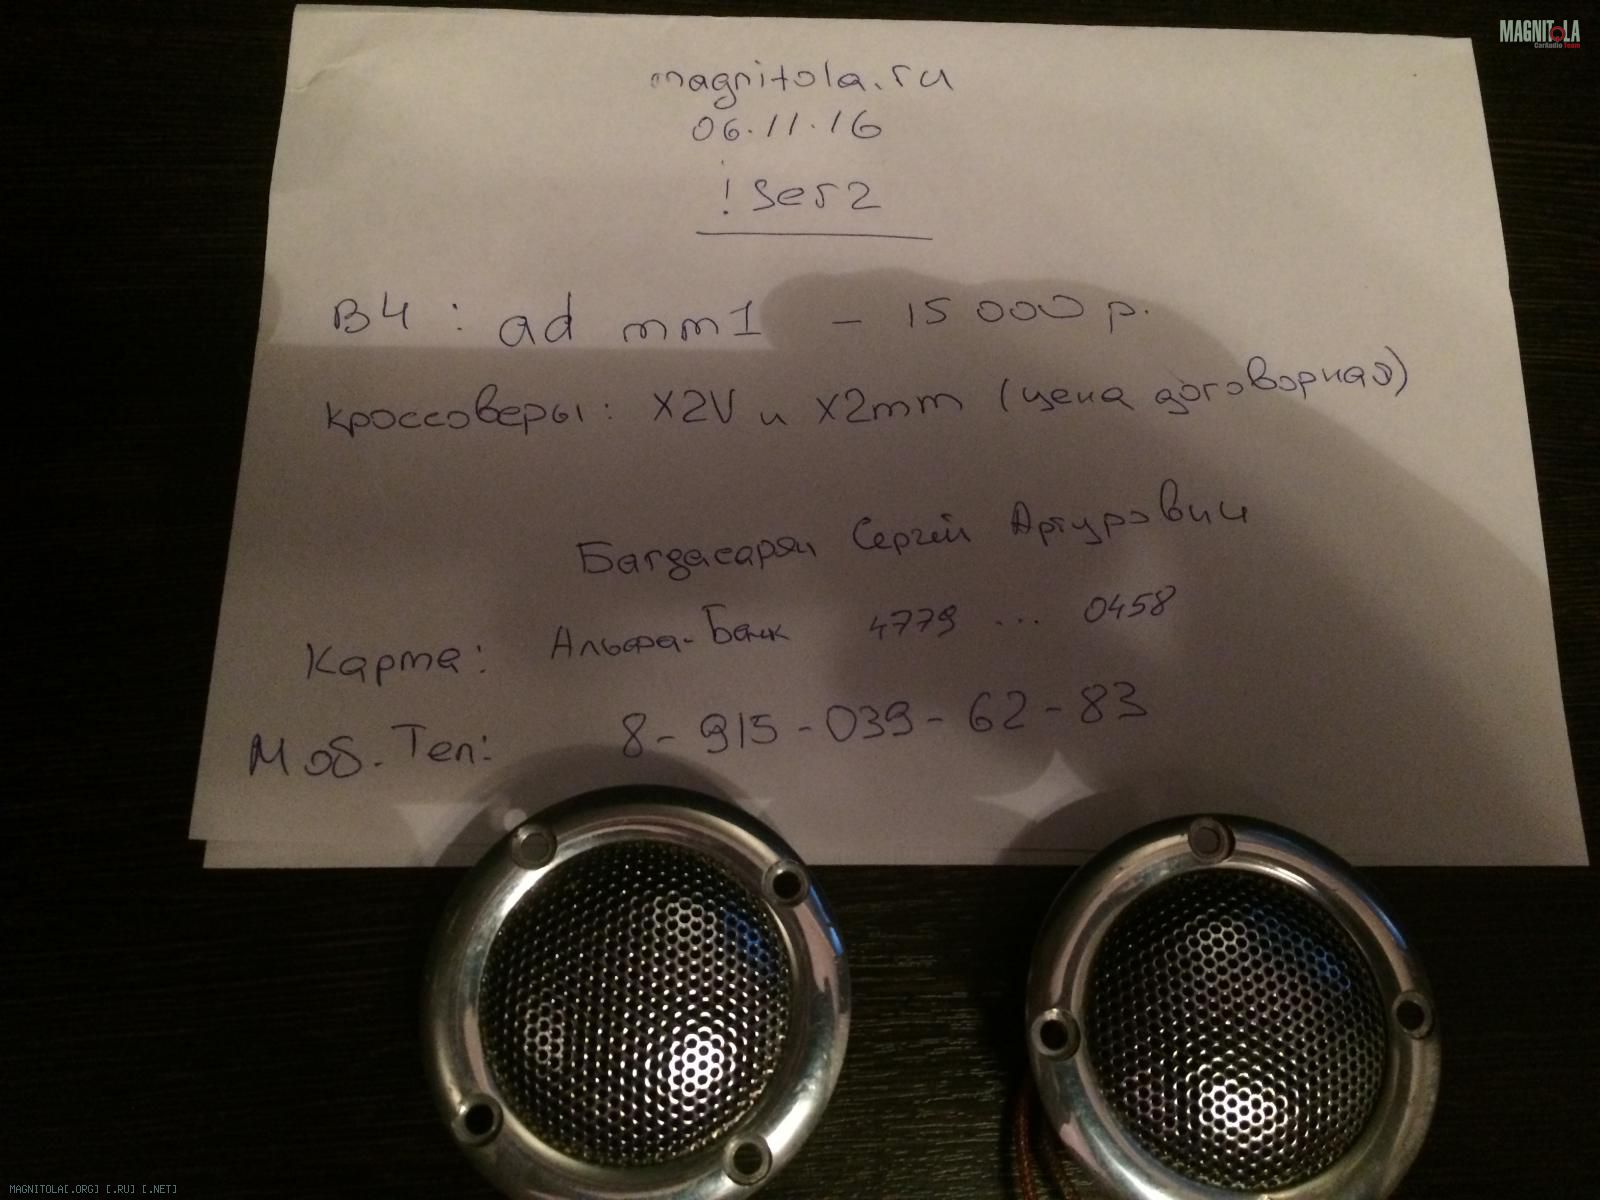 MAGNITOLA
CarAudio Team
magnitola.ru
06.11.16
! Ser2
ВЧ : ad mm1 – 15 000 р.
Кроссоверы: X2V и X2mm (цена договорная)
Багдасарян Сергей Артурович
Карта: Альфа-Банк 4779 ... 0458
Моб. Тел: 8-915-039-62-83
MAGNITOLA[.ORG] [.RU] [.NET]